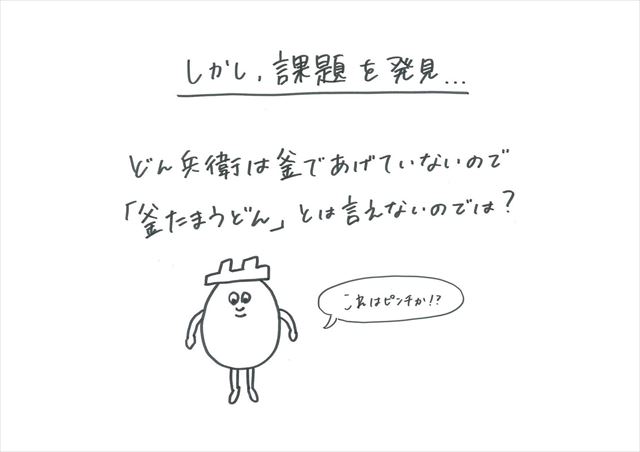 しかし、課題を発見...
どん兵衛は釜であげていないので
「釜たまうどん」とは言えないのでは?
これはピンチか!?